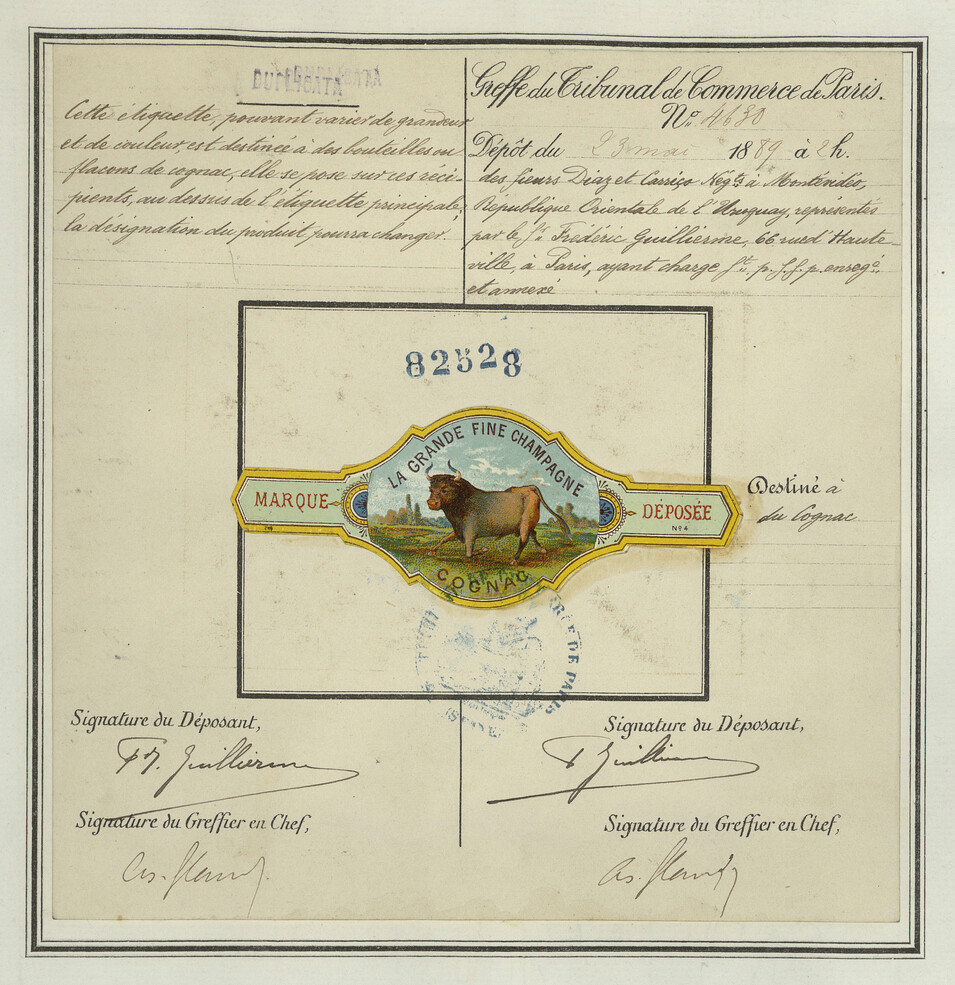 DUPLICATA
Cette étiquette, pouvant varier de grandeur
et de couleur, est destinée à des bouteilles ou
flacons de cognac, elle se pose sur ces réci-
pients, au dessus de l'étiquette principale,
la désignation du produit pourra changer.
Greffe du Tribunal de Commerce de Paris.
No. 4630
Dépôt du 23 mai 1889 à 2h.
des sieurs Diaz et Carriço Négts à Montévidéo,
République Orientale de l'Uruguay, représentés
par le Sr. Frédéric Guillierme, 66, rue d'Haute-
ville, à Paris, ayant charge st. p. s.s.p. enregé.
et annexé
82528
LA GRANDE FINE CHAMPAGNE
MARQUE
DÉPOSÉE
No 4
COGNAC
Destiné à
du Cognac
DE PARIS
Signature du Déposant,
Fr. Guillierme
Signature du Greffier en Chef,
Signature du Déposant,
Guillierme
Signature du Greffier en Chef,